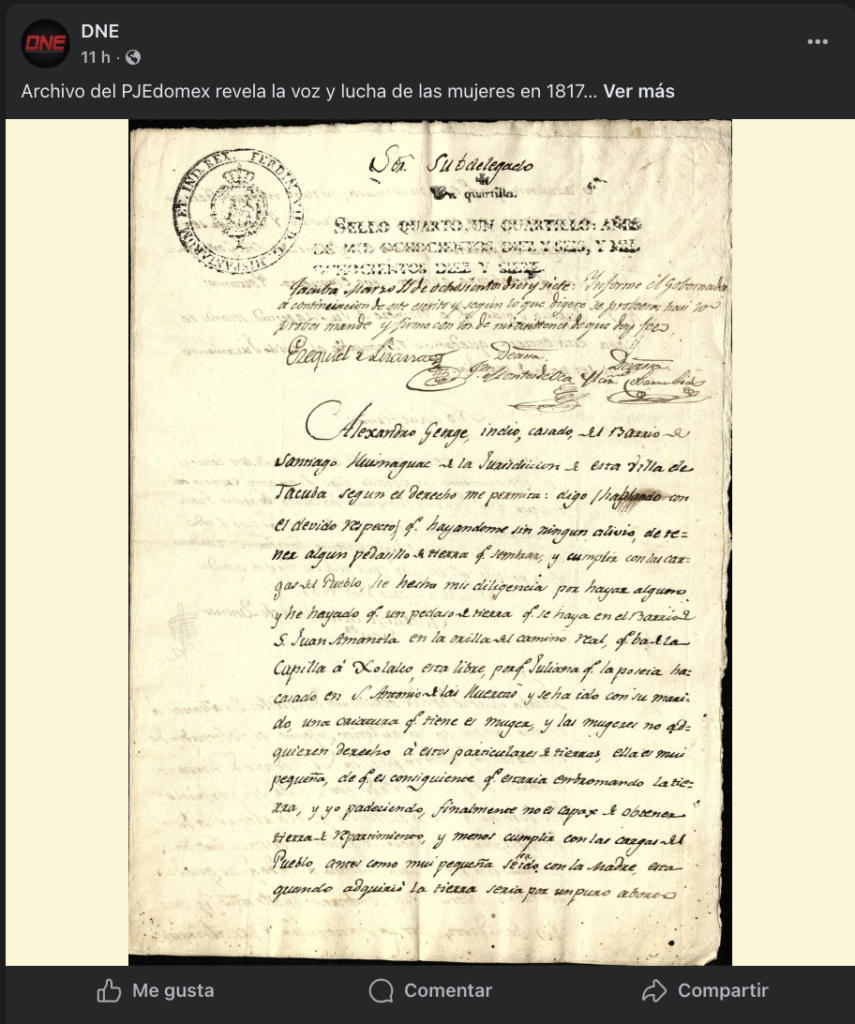 DNE
DNE
11 h ·
Archivo del PJEdomex revela la voz y lucha de las mujeres en 1817... Ver más
Sōr. Subdelegado
Un quartillo.
HISPANIARUM. ET. IND. REX. FERDIN. VII. D. G.
SELLO QUARTO, UN QUARTILLO: AÑOS
DE MIL OCHOCIENTOS DIEZ Y SEIS, Y MIL
OCHOCIENTOS DIEZ Y SIETE.
Tacuba Marzo 11 de ochosientos dies y siete: Informe el Gobernador
a continuacion de este escrito y segun lo que digere se probeera: hasi lo
probei mande y firme con los de mi asistencia de que doy fee
Ezequiel Lizarra
Deassa. Deassa
Montes de Oca
Alexandro George, indio, casado, del Barrio de
Santiago Huisnaguac de la Jurisdiccion de esta Villa de
Tacuba segun el derecho me permita: digo (hablando con
el devido respecto) q.e hayandome sin ningun alivio, de te=
ner algun pedasillo de tierra q.e sembrar, y cumplir con las car=
gas del Pueblo, he hecho mis diligencia por hayar alguno
y he hayado q.e un pedaso de tierra q.e se haya en el Barrio de
S. Juan Amanola en la orilla del camino real, q.e ba de la
Capilla á Xolalco, esta libre, porq.e Juliana q.e la poseia ha=
casado en S. Antonio de las Huertas y se ha ido con su mari=
do, una criatura q.e tiene es muger, y las mugeres no ad=
quieren derecho á estos particulares de tierras, ella es mui
pequeña, de q.e es consiguiente q.e estaria embromando la tie=
rra, y yo padeciendo, finalmente no es capax de obtener
tierra de repartimiento, y menos cumplir con las cargas del
Pueblo, antes como mui pequeña se ha ido con la Madre, esta
quando adquirió la tierra seria por un puro
Me gusta
Comentar
Compartir